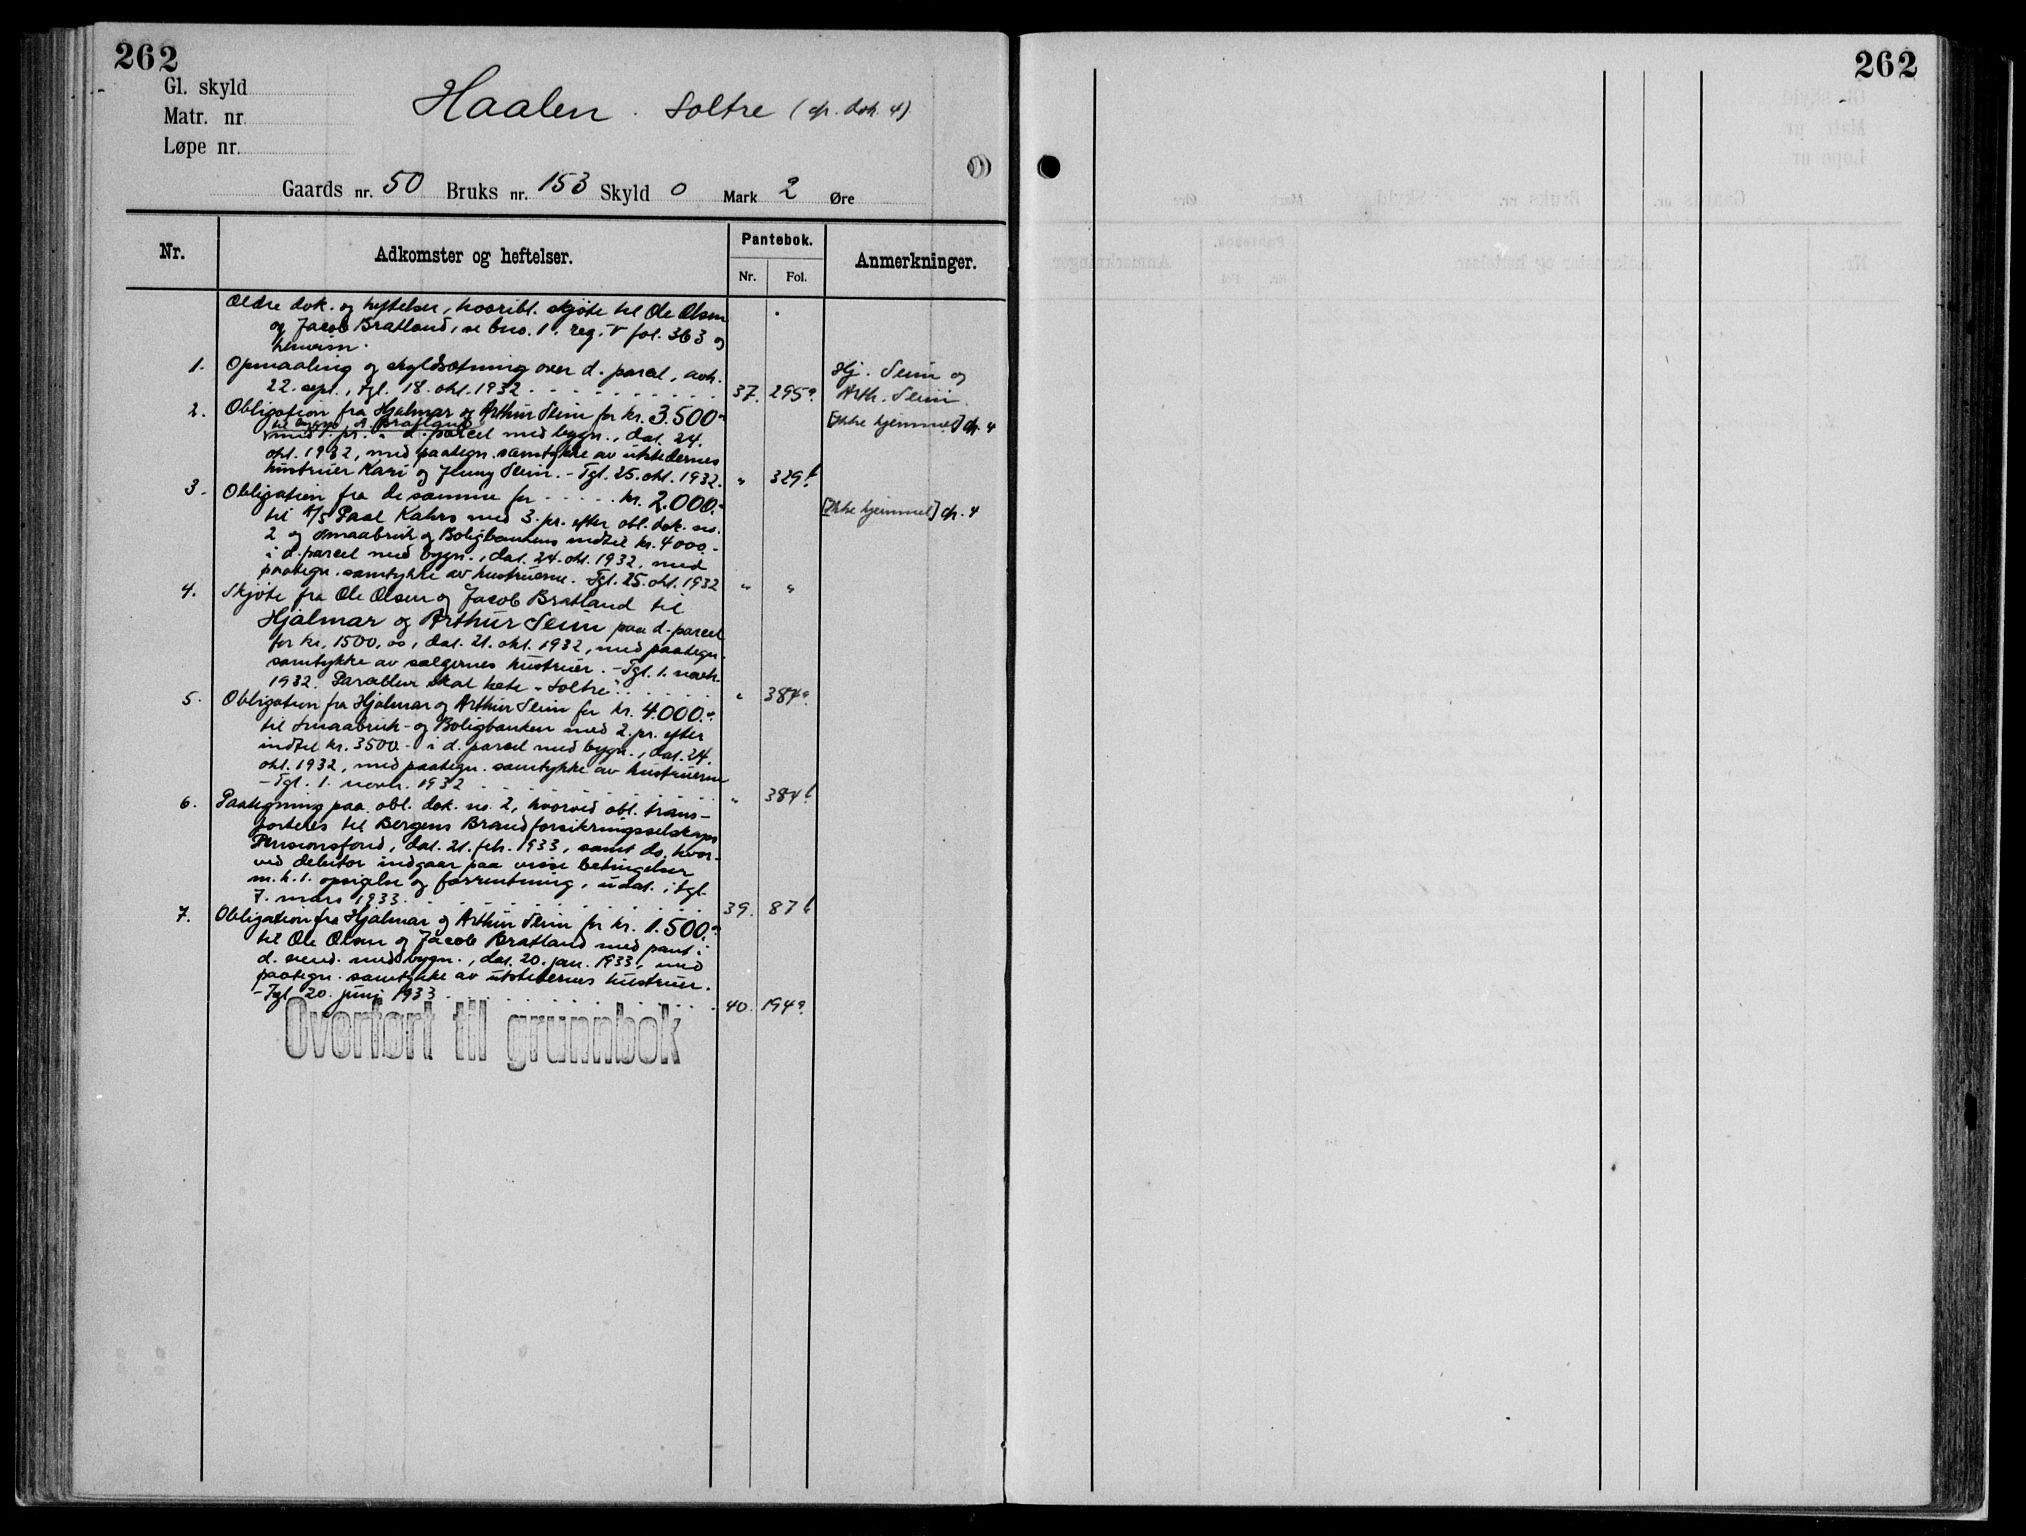 262
262
Gl. skyld
Matr. nr.
Løpe nr.
Haalen. Soltre (cfr. dok. 4)
Gaards nr. 50 Bruks nr. 153 Skyld 0 Mark 2 Øre
Nr. Adkomster og heftelser. Pantebok. Anmerkninger.
Nr. Fol.
Ældre dok. og heftelser, hvoribl. skjøte til Ole Olsen
og Jacob Bratland, se bno. 1. reg. V fol. 363 og
henvisn.
1. Opmaaling og skyldsætning over d. parcel, avh.
22. sept., tgl. 18. okt. 1932 37. 295a
Hj. Seim og
Arth. Seim.
2. Obligation fra Hjalmar og Arthur Seim for kr. 3.500.-
med 1. pr. i d. parcel med bygn., dat. 24.
okt. 1932, med paategn. samtykke av utstedernes
hustruer Kari og Jenny Seim. - Tgl. 25. okt. 1932. " 329b
[Ikke hjemmel] cfr. 4
3. Obligation fra de samme for kr. 2.000.-
til A/S Paal Kahrs med 3. pr. efter obl. dok. no.
2 og Smaabruk og Boligbankens indtil kr. 4000.-
i d. parcel med bygn., dat. 24. okt. 1932, med
paategn. samtykke av hustruerne. Tgl. 25. okt. 1932 " "
[Ikke hjemmel] cfr. 4
4. Skjøte fra Ole Olsen og Jacob Bratland til
Hjalmar og Arthur Seim paa d. parcel
for kr. 1500,00, dat. 21. okt. 1932, med paategn.
samtykke av sælgernes hustruer. - Tgl. 1. novb.
1932. Parcellen skal hete "Soltre". " 384a
5. Obligation fra Hjalmar og Arthur Seim for kr. 4.000.-
til Smaabruk- og Boligbanken med 2. pr. efter
indtil kr. 3500.- i d. parcel med bygn., dat. 24.
okt. 1932, med paategn. samtykke av hustruerne
- Tgl. 1. novb. 1932 " 384b
6. Paategning paa obl. dok. no. 2, hvorved obl. trans-
porteres til Bergens Brandforsikringsselskaps
Pensionsfond, dat. 21. feb. 1933, samt do. hvor-
ved debitor indgaar paa visse betingelser
m. h. t. opsigelse og forrentning, udat., tgl.
7. mars 1933. 39. 87b
7. Obligation fra Hjalmar og Arthur Seim for kr. 1.500.-
til Ole Olsen og Jacob Bratland med pant i
d. eiend. med bygn., dat. 20. jan. 1933, med
paategn. samtykke av utstedernes hustruer.
- Tgl. 20. juni 1933 40. 194a
Overført til grunnbok